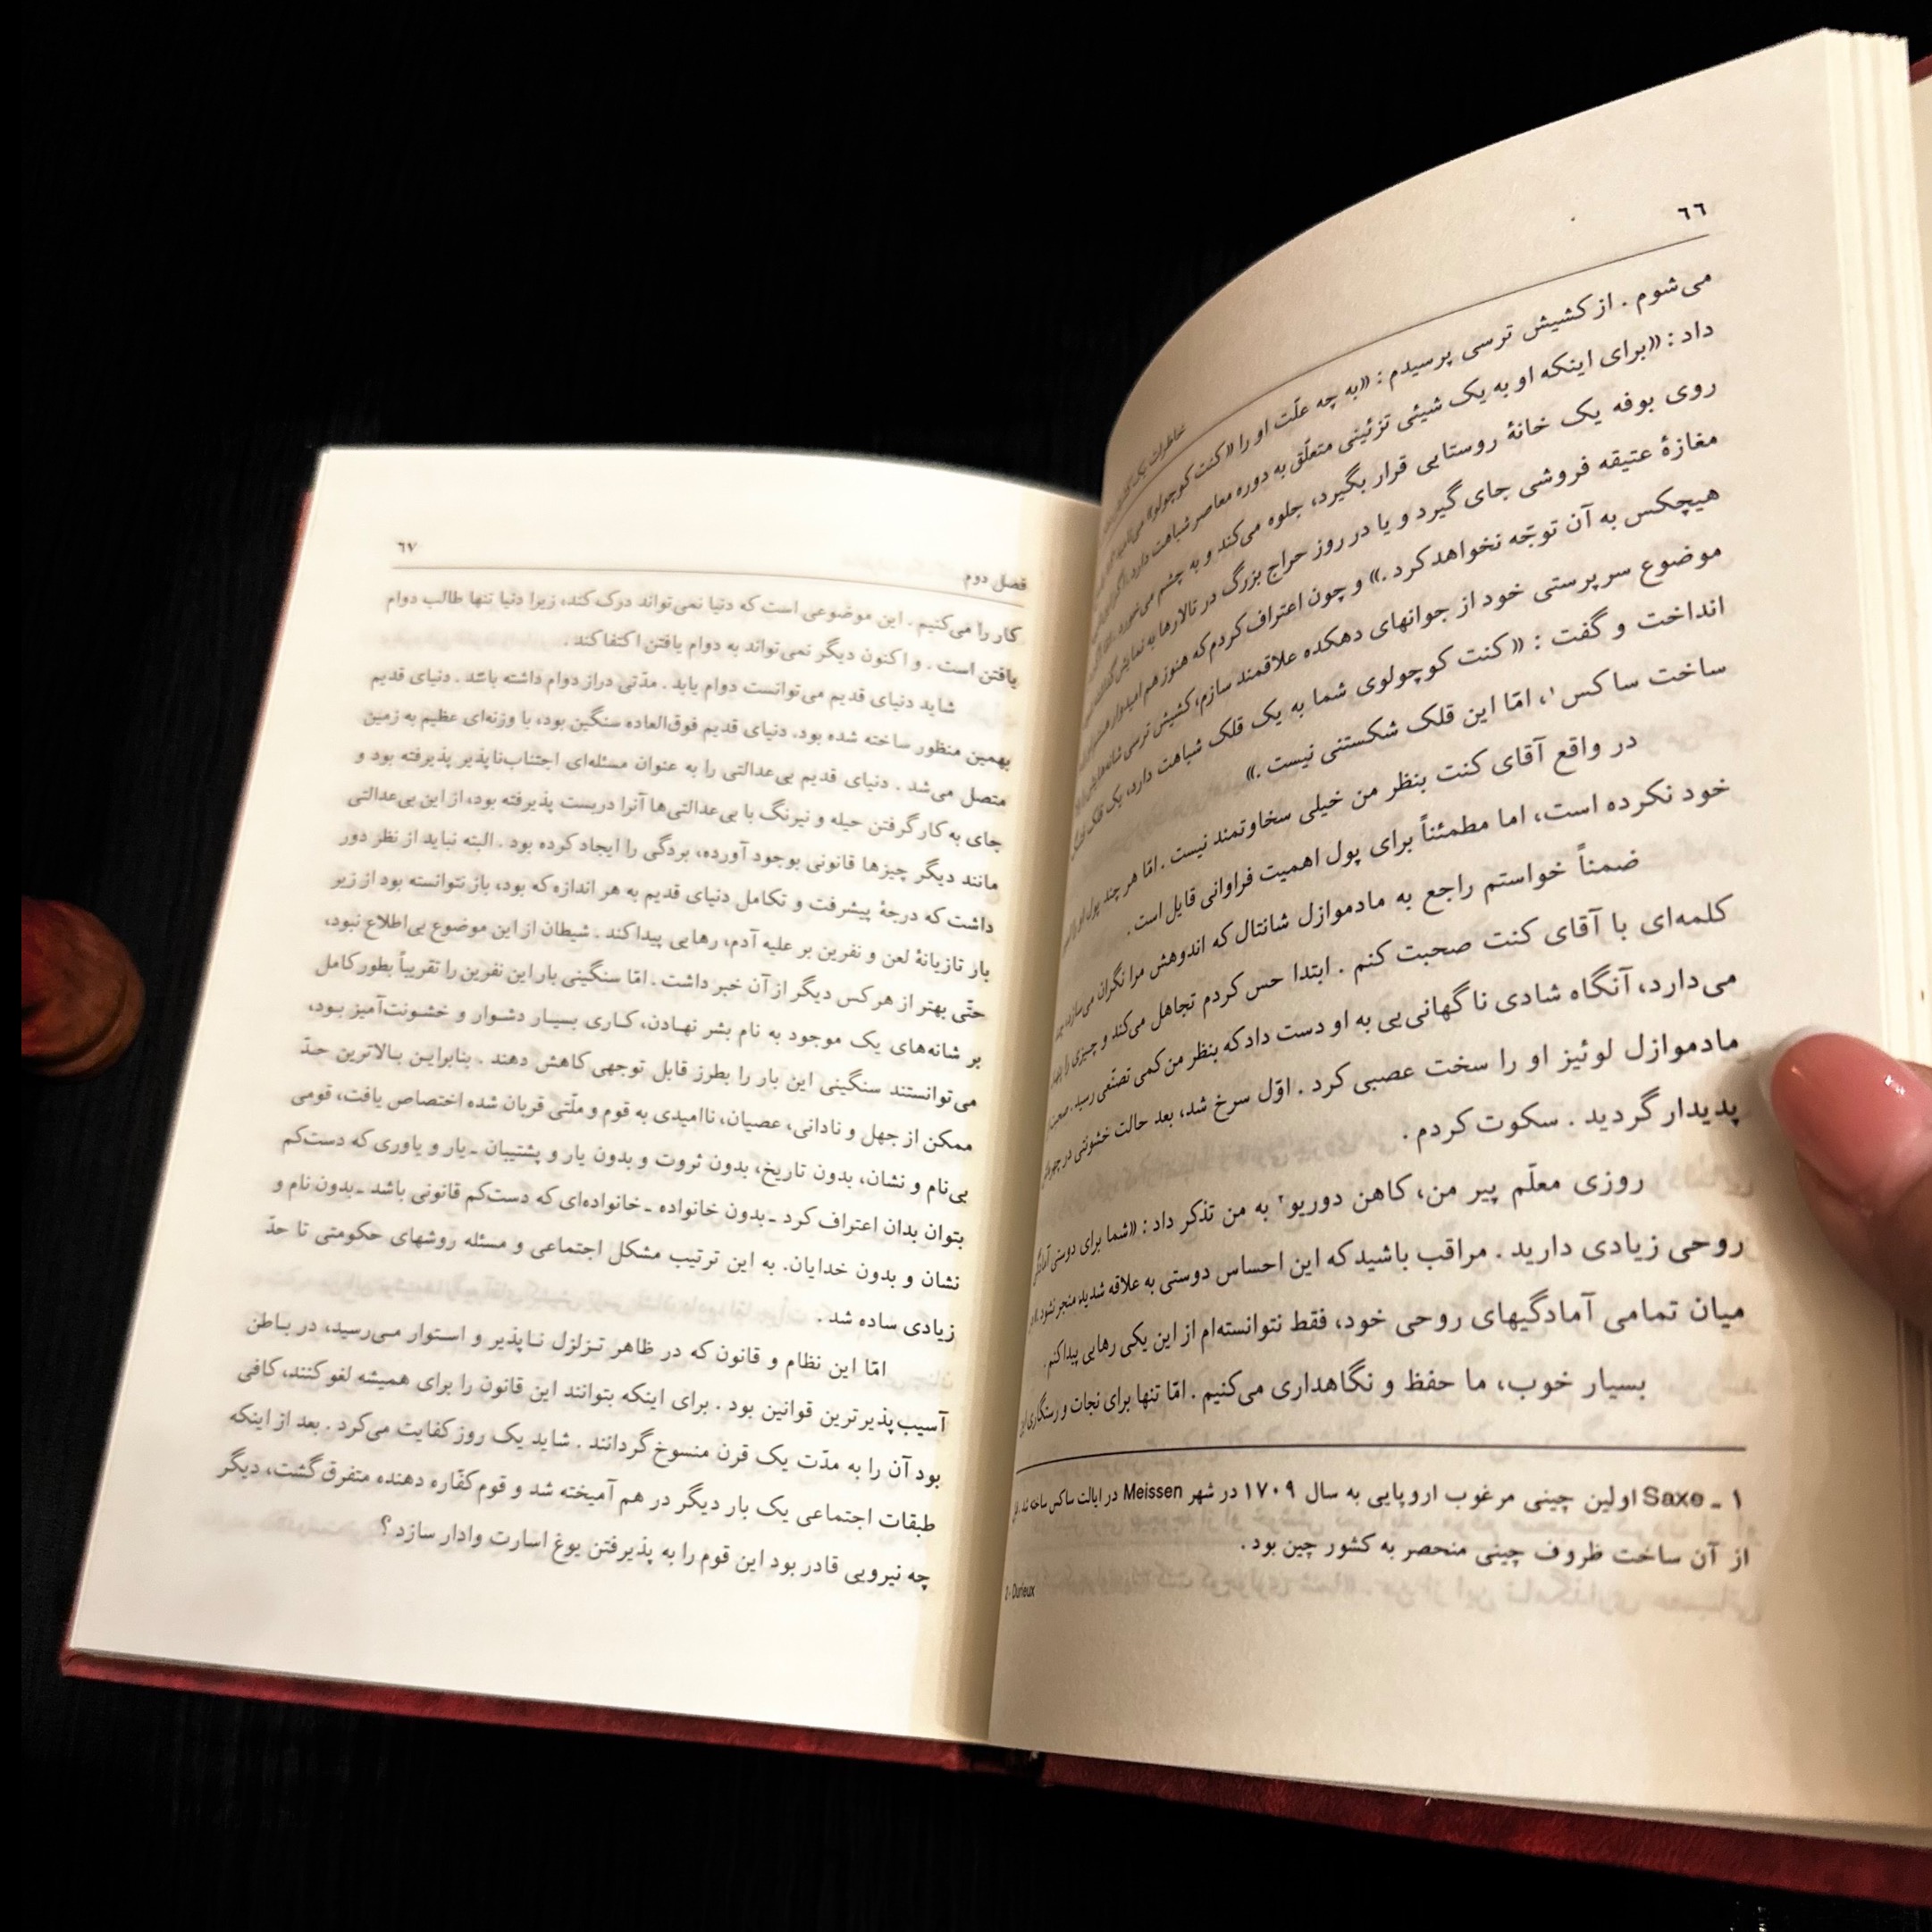 ٦٦
خاطرات یک
می‌شوم . از کشیش ترسی پرسیدم : «به چه علّت او را «کنت کوچولو» می‌نامید
داد : «برای اینکه او به یک شیئی تزئینی متعلّق به دوره معاصر شباهت دارد.
روی بوفه یک خانهٔ روستایی قرار بگیرد، جلوه می‌کند و به چشم می‌خورد .
مغازهٔ عتیقه فروشی جای گیرد و یا در روز حراج بزرگ در تالارها به نمایش
هیچکس به آن توجّه نخواهد کرد .» و چون اعتراف کردم که هنوز هم امیدوار هستم
موضوع سرپرستی خود از جوانهای دهکده علاقمند سازم، کشیش ترسی شانه‌هایش
انداخت و گفت : «کنت کوچولوی شما به یک قلک شباهت دارد، یک قلک
ساخت ساکس١، امّا این قلک شکستنی نیست .»
در واقع آقای کنت بنظر من خیلی سخاوتمند نیست . امّا هر چند پول
خود نکرده است، اما مطمئناً برای پول اهمیت فراوانی قایل است .
ضمناً خواستم راجع به مادموازل شانتال که اندوهش مرا نگران می‌سازد،
کلمه‌ای با آقای کنت صحبت کنم . ابتدا حس کردم تجاهل می‌کند و چیزی را
می‌دارد، آنگاه شادی ناگهانی‌یی به او دست داد که بنظر من کمی تصنّعی رسید .
مادموازل لوئیز او را سخت عصبی کرد . اوّل سرخ شد، بعد حالت خشونتی در
پدیدار گردید . سکوت کردم .
روزی معلّم پیر من، کاهن دوریو٢ به من تذکر داد : «شما برای دوستی
روحی زیادی دارید . مراقب باشید که این احساس دوستی به علاقه شدید منجر نشود.
میان تمامی آمادگیهای روحی خود، فقط نتوانسته‌ام از این یکی رهایی پیدا کنم .
بسیار خوب، ما حفظ و نگاهداری می‌کنیم . امّا تنها برای نجات و رستگاری این
١ ـ Saxe اولین چینی مرغوب اروپایی به سال ١٧٠٩ در شهر Meissen در ایالت ساکس ساخته شد .
از آن ساخت ظروف چینی منحصر به کشور چین بود .
2 - Durieux
فصل دوم
٦٧
کار را می‌کنیم . این موضوعی است که دنیا نمی‌تواند درک کند، زیرا دنیا تنها طالب دوام
یافتن است . و اکنون دیگر نمی‌تواند به دوام یافتن اکتفا کند .
شاید دنیای قدیم می‌توانست دوام یابد . مدّتی دراز دوام داشته باشد . دنیای قدیم
بهمین منظور ساخته شده بود. دنیای قدیم فوق‌العاده سنگین بود، با وزنه‌ای عظیم به زمین
متصل می‌شد . دنیای قدیم بی‌عدالتی را به عنوان مسئله‌ای اجتناب‌ناپذیر پذیرفته بود و
جای به کار گرفتن حیله و نیرنگ با بی‌عدالتی‌ها آنرا دربست پذیرفته بود، از این بی‌عدالتی
مانند دیگر چیزها قانونی بوجود آورده، بردگی را ایجاد کرده بود . البته نباید از نظر دور
داشت که درجهٔ پیشرفت و تکامل دنیای قدیم به هر اندازه که بود، باز نتوانسته بود از زیر
بار تازیانهٔ لعن و نفرین بر علیه آدم، رهایی پیدا کند . شیطان از این موضوع بی‌اطلاع نبود،
حتّی بهتر از هر کس دیگر از آن خبر داشت . امّا سنگینی بار این نفرین را تقریباً بطور کامل
بر شانه‌های یک موجود به نام بشر نهادن، کاری بسیار دشوار و خشونت‌آمیز بود،
می‌توانستند سنگینی این بار را بطرز قابل توجهی کاهش دهند . بنابراین بالاترین حدّ
ممکن از جهل و نادانی، عصیان، ناامیدی به قوم و ملّتی قربان شده اختصاص یافت، قومی
بی‌نام و نشان، بدون تاریخ، بدون ثروت و بدون یار و پشتیبان ـ یار و یاوری که دست‌کم
بتوان بدان اعتراف کرد ـ بدون خانواده ـ خانواده‌ای که دست‌کم قانونی باشد ـ بدون نام و
نشان و بدون خدایان. به این ترتیب مشکل اجتماعی و مسئله روشهای حکومتی تا حدّ
زیادی ساده شد .
امّا این نظام و قانون که در ظاهر تزلزل ناپذیر و استوار می‌رسید، در باطن
آسیب‌پذیرترین قوانین بود . برای اینکه بتوانند این قانون را برای همیشه لغو کنند، کافی
بود آن را به مدّت یک قرن منسوخ گردانند . شاید یک روز کفایت می‌کرد . بعد از اینکه
طبقات اجتماعی یک بار دیگر در هم آمیخته شد و قوم کفّاره دهنده متفرق گشت، دیگر
چه نیرویی قادر بود این قوم را به پذیرفتن یوغ اسارت وادار سازد ؟